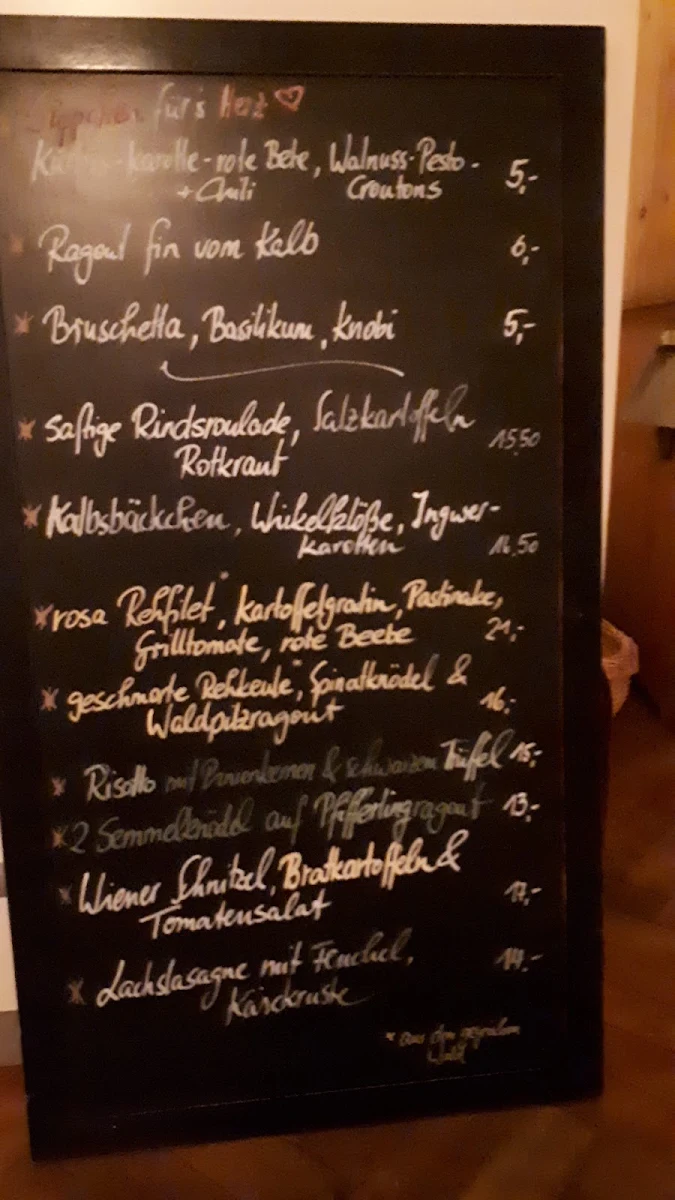 Süppchen für's Herz
Kürbis-karotte-rote Bete, Walnuss-Pesto-
+ Chili Croutons 5,-
* Ragout fin vom Kalb 6,-
* Bruschetta, Basilikum, Knobi 5,-
* saftige Rindsroulade, Salzkartoffeln
Rotkraut 15,50
* Kalbsbäckchen, Wickelklöße, Ingwer-
karotten 16,50
* rosa Rehfilet*, Kartoffelgratin, Pastinake,
Grilltomate, rote Beete 21,-
* geschmorte Rehkeule*, Spinatknödel &
Waldpilzragout 16,-
* Risotto mit & schwarzem Trüffel 15,-
* 2 Semmelknödel auf Pfifferlingragout 13,-
* Wiener Schnitzel, Bratkartoffeln &
Tomatensalat 17,-
* Lachslasagne mit Fenchel, 14.-
Käsekruste
* aus dem
Wald